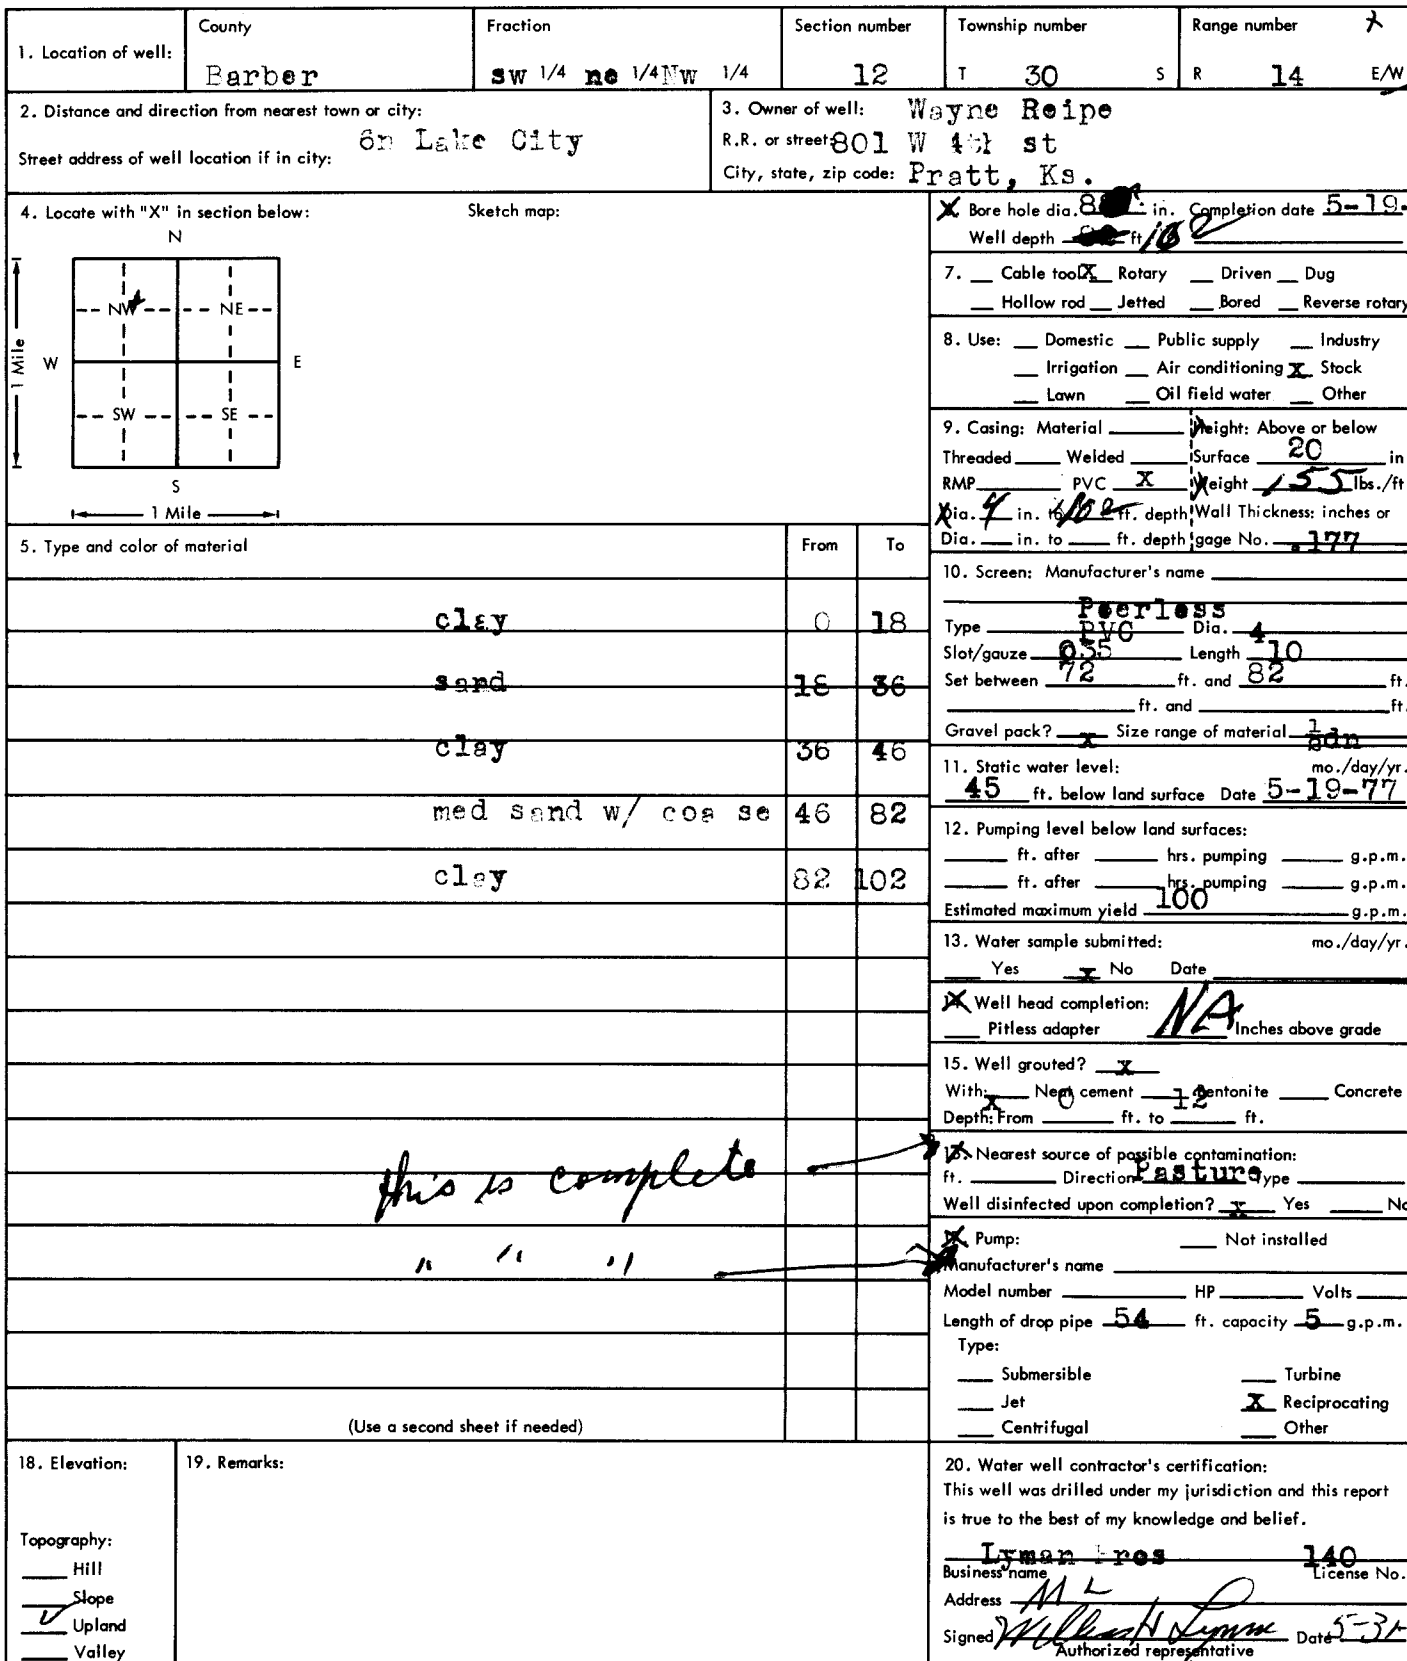 1. Location of well:
County
Barber
Fraction
sw 1/4 ne 1/4 Nw 1/4
Section number
12
Township number
T 30 S
Range number
R 14 E/W
2. Distance and direction from nearest town or city:
6n Lake City
Street address of well location if in city:
3. Owner of well: Wayne Reipe
R.R. or street: 801 W 4th st
City, state, zip code: Pratt, Ks.
4. Locate with "X" in section below:
Sketch map:
N
NW NE
1 Mile W E
SW SE
S
1 Mile
5. Type and color of material From To
clay 0 18
sand 18 36
clay 36 46
med sand w/ coa se 46 82
clay 82 102
this is complete
" " "
(Use a second sheet if needed)
Bore hole dia. 8 in. Completion date 5-19-
Well depth ft 102
7. Cable tool X Rotary Driven Dug
Hollow rod Jetted Bored Reverse rotary
8. Use: Domestic Public supply Industry
Irrigation Air conditioning X Stock
Lawn Oil field water Other
9. Casing: Material Height: Above or below
Threaded Welded Surface 20 in
RMP PVC X Weight .155 lbs./ft
Dia. 4 in. to 102 ft. depth Wall Thickness: inches or
Dia. in. to ft. depth gage No. .177
10. Screen: Manufacturer's name
Peerless
Type PVC Dia. 4
Slot/gauze 035 Length 10
Set between 72 ft. and 82 ft.
ft. and ft.
Gravel pack? x Size range of material 1/2dn
11. Static water level: mo./day/yr.
45 ft. below land surface Date 5-19-77
12. Pumping level below land surfaces:
ft. after hrs. pumping g.p.m.
ft. after hrs. pumping g.p.m.
Estimated maximum yield 100 g.p.m.
13. Water sample submitted: mo./day/yr.
Yes x No Date
14. Well head completion:
Pitless adapter NA Inches above grade
15. Well grouted? x
With: x Neat cement Bentonite Concrete
Depth: From 0 ft. to 12 ft.
16. Nearest source of possible contamination:
ft. Direction Pasture Type
Well disinfected upon completion? x Yes No
17. Pump: Not installed
Manufacturer's name
Model number HP Volts
Length of drop pipe 54 ft. capacity 5 g.p.m.
Type:
Submersible Turbine
Jet X Reciprocating
Centrifugal Other
18. Elevation:
Topography:
Hill
Slope
Upland
Valley
19. Remarks:
20. Water well contractor's certification:
This well was drilled under my jurisdiction and this report
is true to the best of my knowledge and belief.
Lyman Bros 140
Business name License No.
Address M L
Signed William H Lyman Date 5-31-
Authorized representative